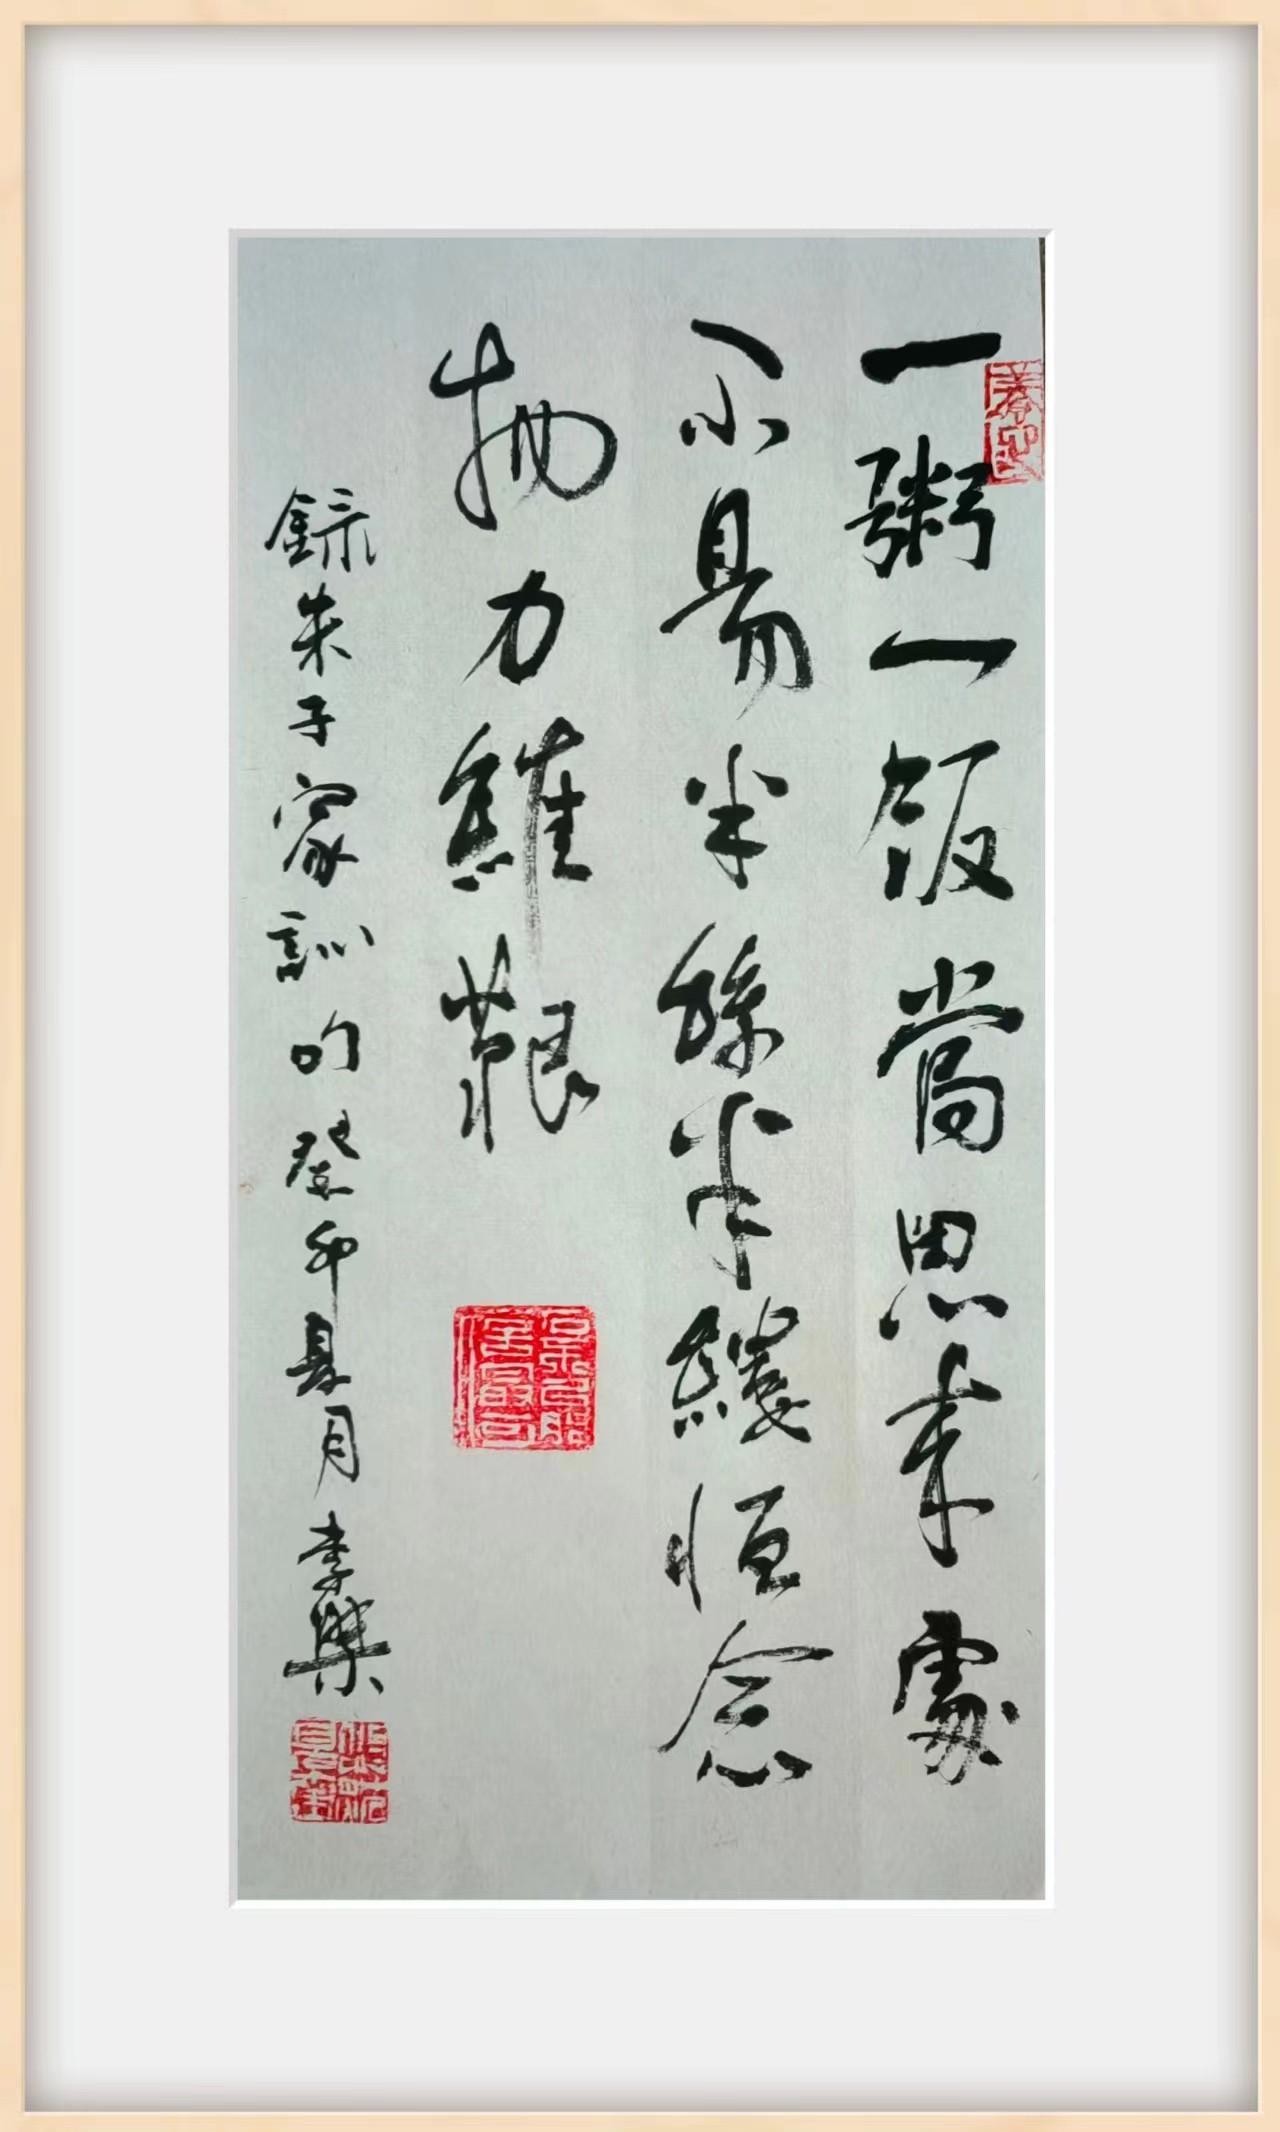 一粥一飯當思來處
不易半絲半縷恒念
物力維艱
錄朱子家訓句癸卯夏月李傑